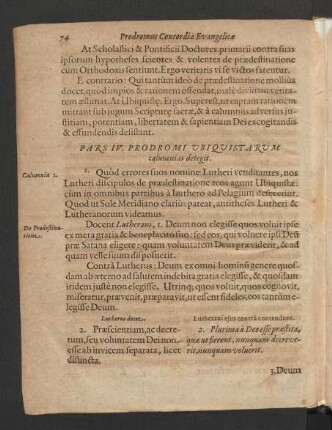 74 Prodromus Concordiæ Evangelicæ
At Scholastici & Pontificii Doctores primarii contra suas
ipsorum hypotheses scientes & volentes de prædestinatione
cum Orthodoxis sentiunt. Ergo veritatis vi se victos fatentur.
E contrario: Qui tantum ideo de prædestinatione mollius
docet, quod impios & rationem offendat, male divinam verita-
tem æstimat. At Ubiquistæ. Ergo. Superest, ut captam rationem
mittant sub jugum Scripturæ sacræ, & à calumniis adversus ju-
stitiam, potentiam, libertatem & sapientiam Dei excogitandis
& effundendis desistant.
PARS IV. PRODROMI UBIQUISTARUM
calumnias detegit.
Calumnia 1.
1. Quod errores suos nomine Lutheri venditantes, nos
Lutheri discipulos de prædestinatione reos agunt Ubiquistæ:
cum in omnibus partibus à Luthero ad Pelagium desciverint.
Quod ut Sole Meridiano clarius pateat, antitheses Lutheri &
Lutheranorum videamus.
De Prædestina-
tione.
Docent Lutherani, 1. Deum non elegisse quos voluit ipse
ex mera gratia & beneplacito suo; sed eos, qui voluere ipsi Deum
præ Satana eligere: quam voluntatem Deus prævidit, & ad
quam velle suum disposuerit.
Contrà Lutherus: Deum ex omni hominũ genere quos-
dam ab æterno ad salutem indebita gratia elegisse, & quosdam
itidem juste non elegisse. Utrinq; quos voluit, quos cognovit,
miseratur, prævenit, præparavit, ut essent fideles, eos tantũm e-
legisse Deum.
Lutherus docet,
2. Præscientiam, ac decre-
tum, seu voluntatem Dei non
esse ab invicem separata, licet
distincta.
Lutherani ejus contrà contendunt.
2. Plurima à Deo esse præscita,
quæ ut fierent, nunquam decreve-
rit, nunquam voluerit.
3. Deum